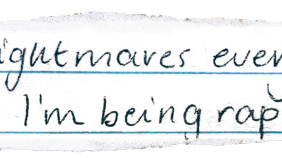 ightmares ever
I'm being rap